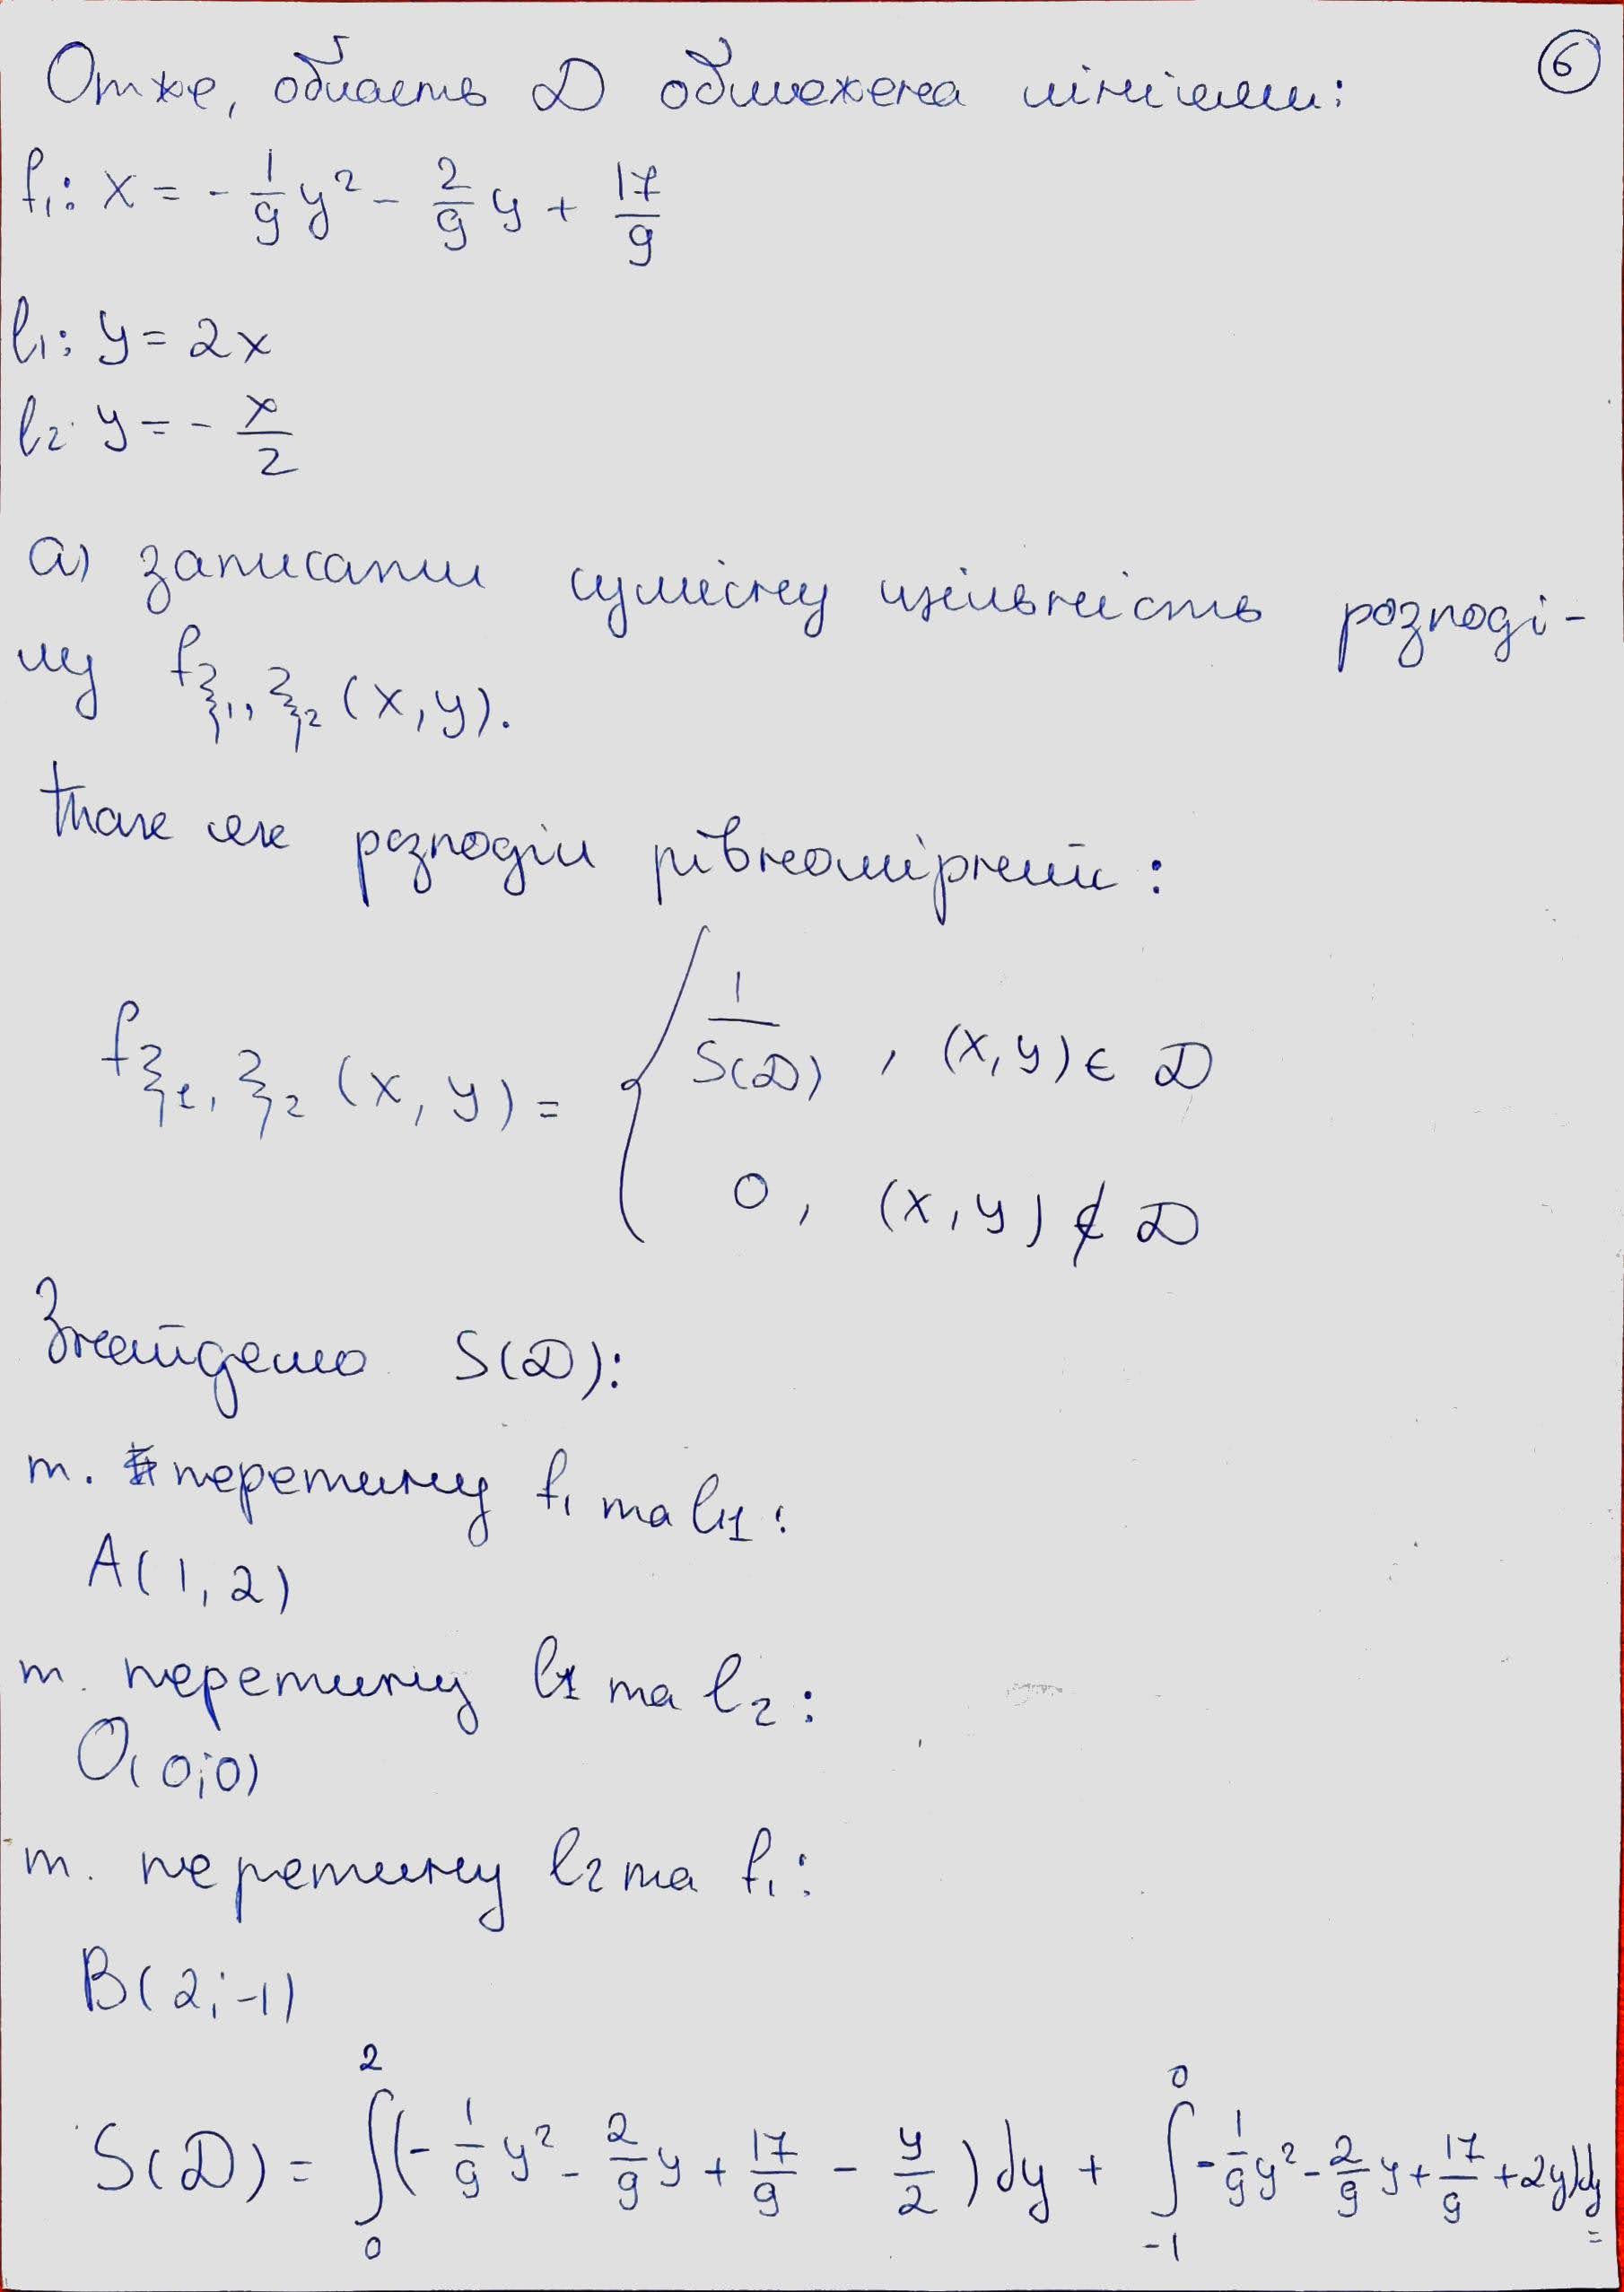 6
Отже, область D обмежена лініями:
f₁: x = - 1/9 y² - 2/9 y + 17/9
l₁: y = 2x
l₂: y = - x/2
а) записати сумісну щільність розподі-
лу f ξ₁, ξ₂ (x, y).
так як розподіл рівномірний:
f ξ₁, ξ₂ (x, y) = { 1/S(D) , (x, y) ∈ D
0, (x, y) ∉ D
Знайдемо S(D):
т. перетину f₁ та l₁:
A(1, 2)
т. перетину l₁ та l₂:
O(0;0)
т. перетину l₂ та f₁:
B(2;-1)
S(D) = ∫₀² (- 1/9 y² - 2/9 y + 17/9 - y/2) dy + ∫₋₁⁰ - 1/9 y² - 2/9 y + 17/9 + 2y) dy =